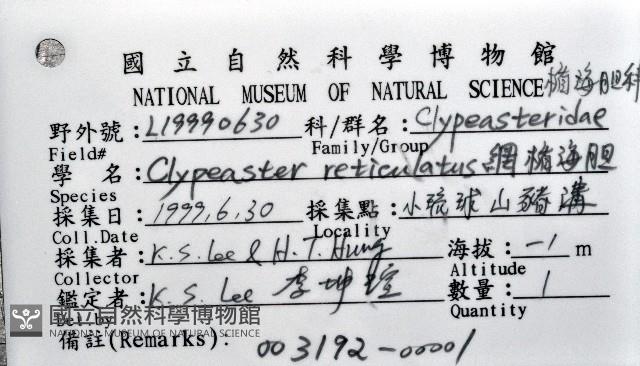 國立自然科學博物館
NATIONAL MUSEUM OF NATURAL SCIENCE 楯海胆科
野外號:L19990630 科/群名:Clypeasteridae
Field# Family/Group
學名:Clypeaster reticulatus 網楯海胆
Species
採集日:1999.6.30 採集點:小琉球山豬溝
Coll.Date Locality
採集者:K.S. Lee & H.T. Hung 海拔:-1 m
Collector Altitude
鑑定者:K.S. Lee 李坤瑄 數量:1
Det. by Quantity
國立自然科學博物館
NATIONAL MUSEUM OF NATURAL SCIENCE
備註(Remarks): 003192-00001